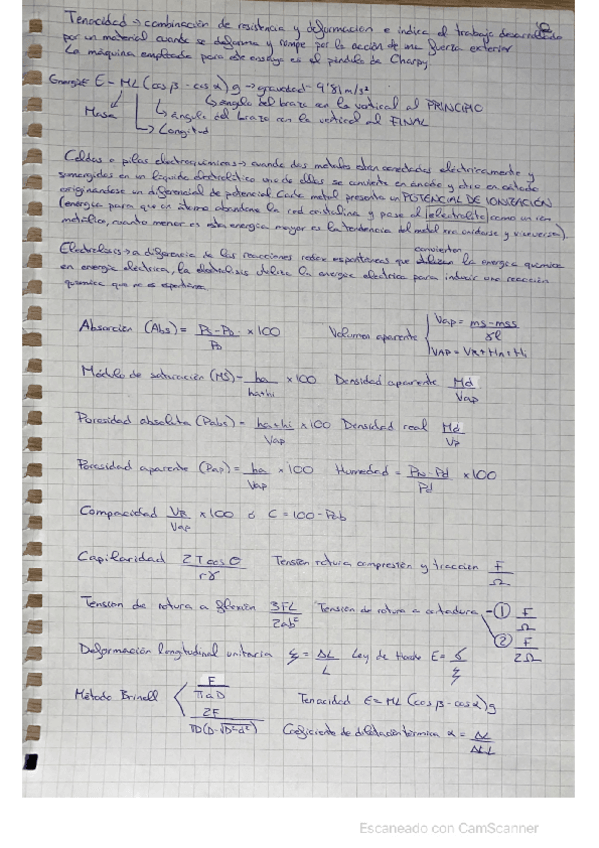 Tenacidad → combinación de resistencia y deformación e indica el trabajo desarrollado
por un material cuando se deforma y rompe por la acción de una fuerza exterior.
La máquina empleada para este ensayo es el péndulo de Charpy.
Energía E = ML (cos β - cos α) g → gravedad = 9'81 m/s²
↳ ángulo del brazo con la vertical al PRINCIPIO
Masa ↳ ángulo del brazo con la vertical al FINAL
↳ Longitud
Celdas o pilas electroquímicas → cuando dos metales están conectados eléctricamente y
sumergidos en un líquido electrolítico uno de ellos se convierte en ánodo y otro en cátodo
originándose un diferencial de potencial. Cada metal presenta un POTENCIAL DE IONIZACIÓN
(energía para que un átomo abandone la red cristalina y pase al electrolito como un ion
metálico, cuanto menor es esta energía mayor es la tendencia del metal para oxidarse y viceversa).
convierten
Electrolisis → a diferencia de las reacciones redox espontáneas que utilizan la energía química
en energía eléctrica, la electrolisis utiliza la energía eléctrica para inducir una reacción
química que no es espontánea.
Absorción (Abs) = Ps - Po / Po × 100 Volumen aparente Vap = ms - mss / γl
VAP = VR + Ha + Hi
Módulo de saturación (MS) = ha / ha+hi × 100 Densidad aparente Md / Vap
Porosidad absoluta (Pabs) = ha+hi / Vap × 100 Densidad real Md / Vr
Porosidad aparente (Pap) = ha / Vap × 100 Humedad = PN - Pd / Pd × 100
Compacidad VR / Vap × 100 ó C = 100 - Pab
Capilaridad 2 T cos θ / rγ Tensión rotura compresión y tracción F / Ω
Tensión de rotura a flexión 3FL / 2ab² Tensión de rotura a cortadura - ① F / Ω
② F / 2Ω
Deformación longitudinal unitaria ξ = ΔL / L Ley de Hooke E = σ / ξ
Método Brinell F / πaD Tenacidad E = ML (cos β - cos α) g
2F / πD(D - √D²-d²) Coeficiente de dilatación térmica α =
Escaneado con CamScanner